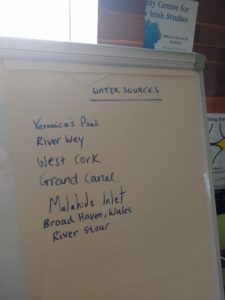 ity Centre for
Irish Studies
WATER SOURCES
Veronica's Pond
River Wey
West Cork
Grand Canal
Malahide Inlet
Broad Haven, Wales
River stour